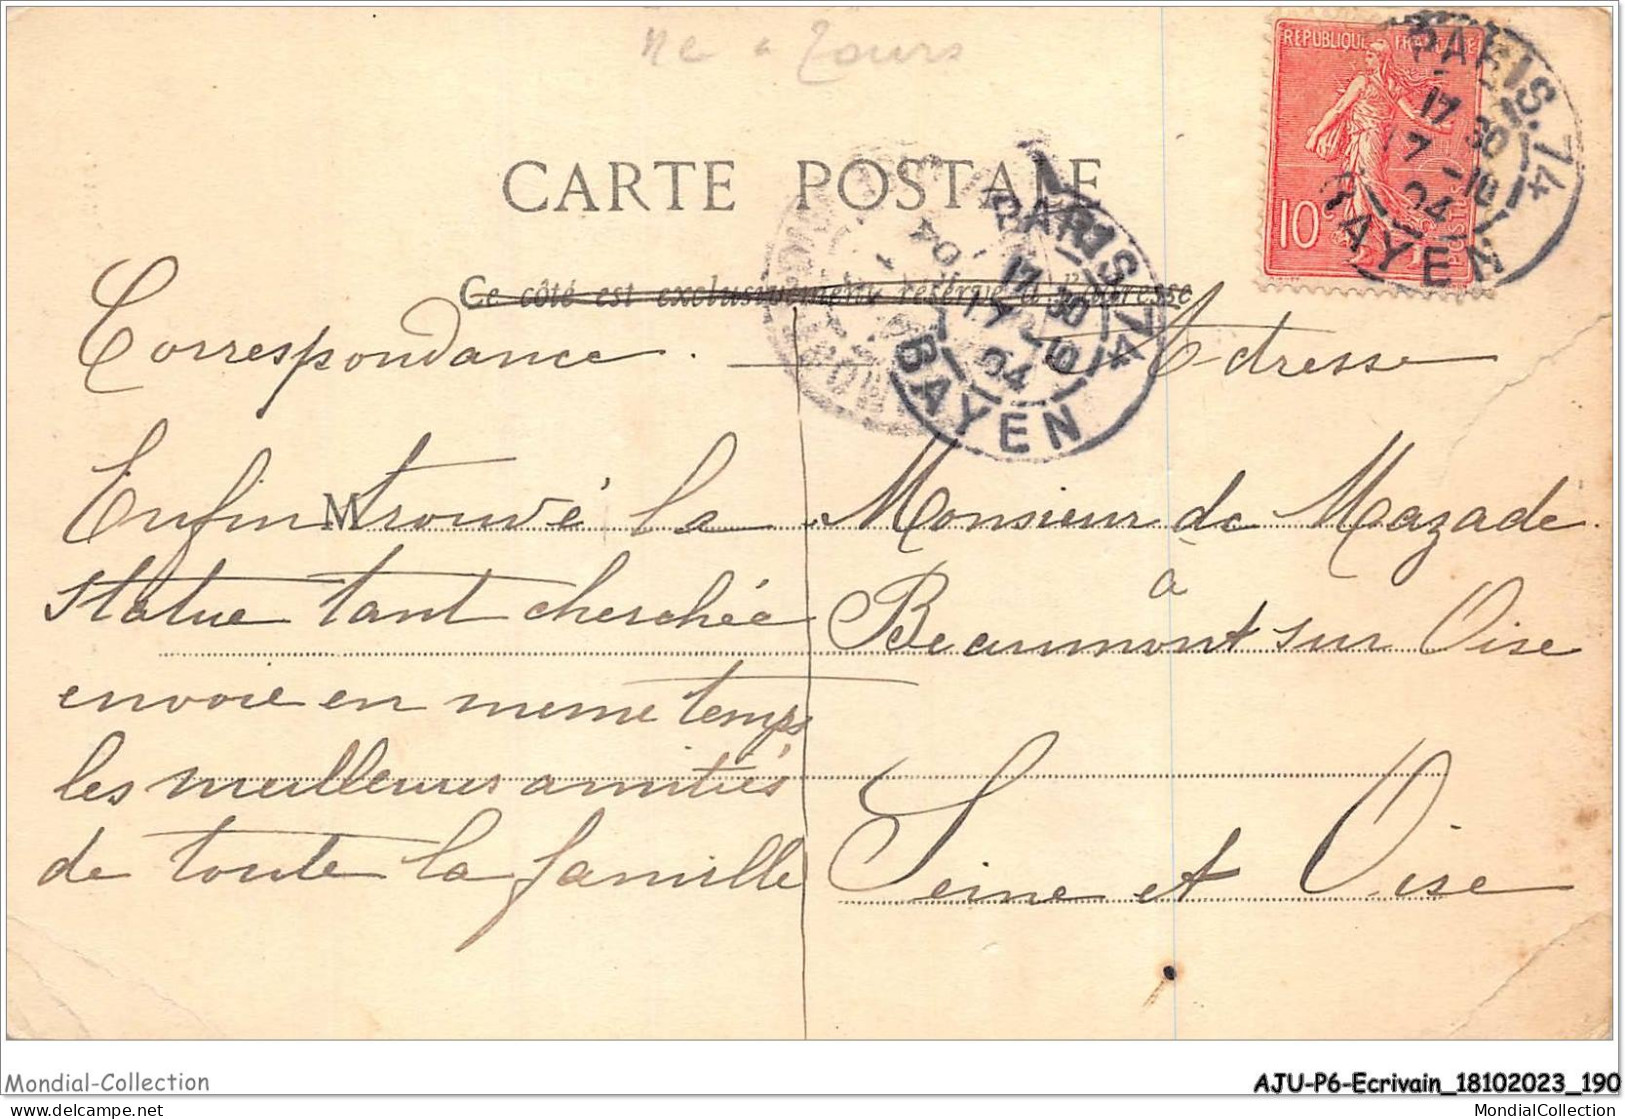 né à Tours
RÉPUBLIQUE FRANÇAISE
10c
POSTES
PARIS. 74
17 30
17 -10
04
BAYEN
CARTE POSTALE
PARIS 74
17 30
17 -10
04
BAYEN
Ce côté est exclusivement réservé à l'adresse
Correspondance. — Adresse
Enfin trouvé la
statue tant cherchée
envoie en meme temps
les meilleures amitiés
de toute la famille
M
Monsieur de Mazade.
à
Beaumont sur Oise
Seine et Oise
Mondial-Collection
AJU-P6-Ecrivain_18102023_190
delcampe.net
MondialCollection